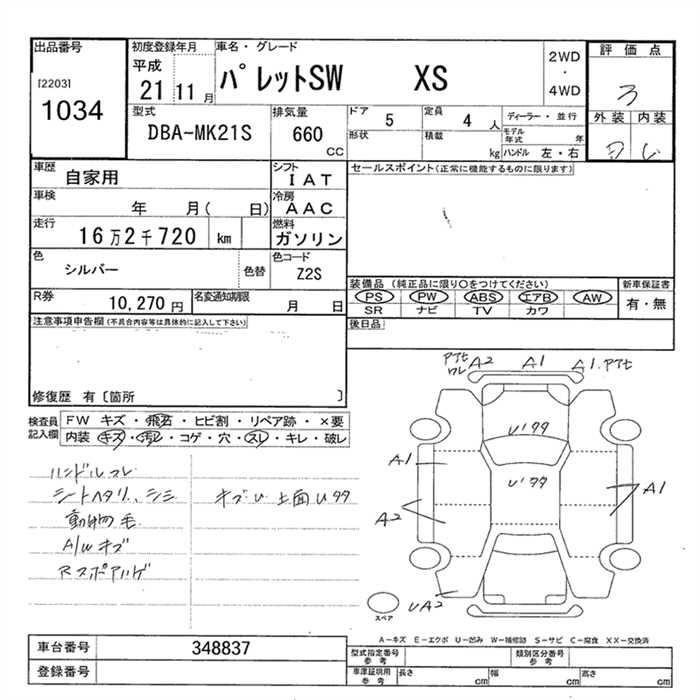 出品番号
[2203]
1034
初度登録年月
平成
21 11 月
車名・グレード
パレットSW XS
2WD
・
4WD
評価点
3
外装 内装
型式
DBA-MK21S
排気量
660 CC
ドア 5
形状
定員 4 人
積載 kg
ディーラー・並行
モデル年式 年
ハンドル 左・右
車歴
自家用
シフト
IAT
車検
年 月( 日)
冷房
AAC
走行
16万2千720 km
燃料
ガソリン
色
シルバー
色替
色コード
Z2S
R券
10,270円
名変通知期限
月 日
セールスポイント(正常に機能するものに限ります)
装備品 (純正品に限り○をつけてください)
PS PW ABS エアB AW
SR ナビ TV カワ
新車保証書
有・無
後日品
注意事項申告欄(不具合内容等は具体的に記入して下さい)
修復歴 有〔箇所 〕
検査員記入欄
FW キズ・飛石・ヒビ割・リペア跡・×要
内装 キズ・汚レ・コゲ・穴・スレ・キレ・破レ
ハンドルスレ
シートヘタリ、シミ
動物毛
A/Wキズ
キズU 上面Uタタ
A2 A1 A1.
Uタタ
Uタタ
A1
A1
A2
UA2
スペア
A-キズ E-エクボ U-凹み W-補修跡 S-サビ C-腐食 XX-交換済
車台番号
348837
登録番号
型式指定番号
参考
類別区分番号
参考
車庫証明用
参考
長さ cm 幅 cm 高さ cm